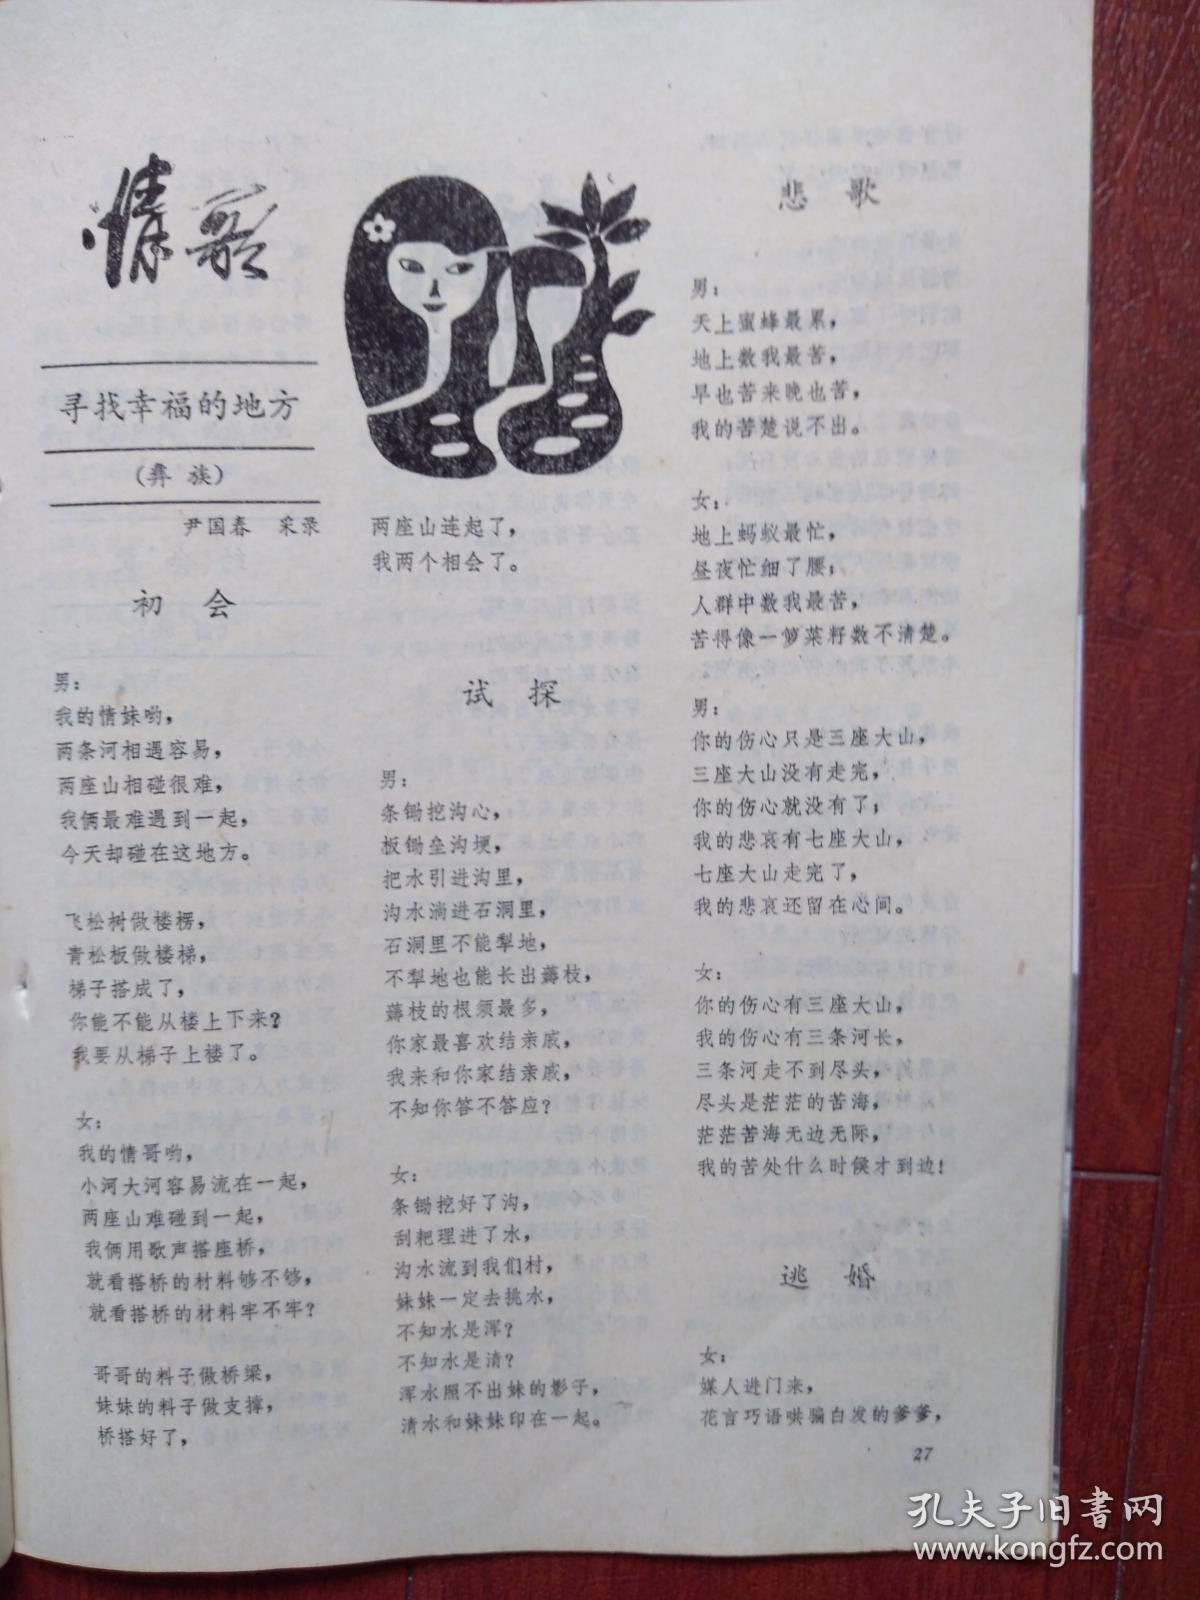 情歌
寻找幸福的地方
(彝族)
尹国春 采录
初会
男：
我的情妹哟，
两条河相遇容易，
两座山相碰很难，
我俩最难遇到一起，
今天却碰在这地方。
飞松树做楼楞，
青松板做楼梯，
梯子搭成了，
你能不能从楼上下来？
我要从梯子上楼了。
女：
我的情哥哟，
小河大河容易流在一起，
两座山难碰到一起，
我俩用歌声搭座桥，
就看搭桥的材料够不够，
就看搭桥的材料牢不牢？
哥哥的料子做桥梁，
妹妹的料子做支撑，
桥搭好了，
两座山连起了，
我两个相会了。
试探
男：
条锄挖沟心，
板锄垒沟埂，
把水引进沟里，
沟水淌进石洞里，
石洞里不能犁地，
不犁地也能长出薅枝，
薅枝的根须最多，
你家最喜欢结亲戚，
我来和你家结亲戚，
不知你答不答应？
女：
条锄挖好了沟，
刮耙理进了水，
沟水流到我们村，
妹妹一定去挑水，
不知水是浑？
不知水是清？
浑水照不出妹的影子，
清水和妹妹印在一起。
悲歌
男：
天上蜜蜂最累，
地上数我最苦，
早也苦来晚也苦，
我的苦楚说不出。
女：
地上蚂蚁最忙，
昼夜忙细了腰，
人群中数我最苦，
苦得像一箩菜籽数不清楚。
男：
你的伤心只是三座大山，
三座大山没有走完，
你的伤心就没有了；
我的悲哀有七座大山，
七座大山走完了，
我的悲哀还留在心间。
女：
你的伤心有三座大山，
我的伤心有三条河长，
三条河走不到尽头，
尽头是茫茫的苦海，
茫茫苦海无边无际，
我的苦处什么时候才到边！
逃婚
女：
媒人进门来，
花言巧语哄骗白发的爹爹，
27
孔夫子旧书网
www.kongfz.com